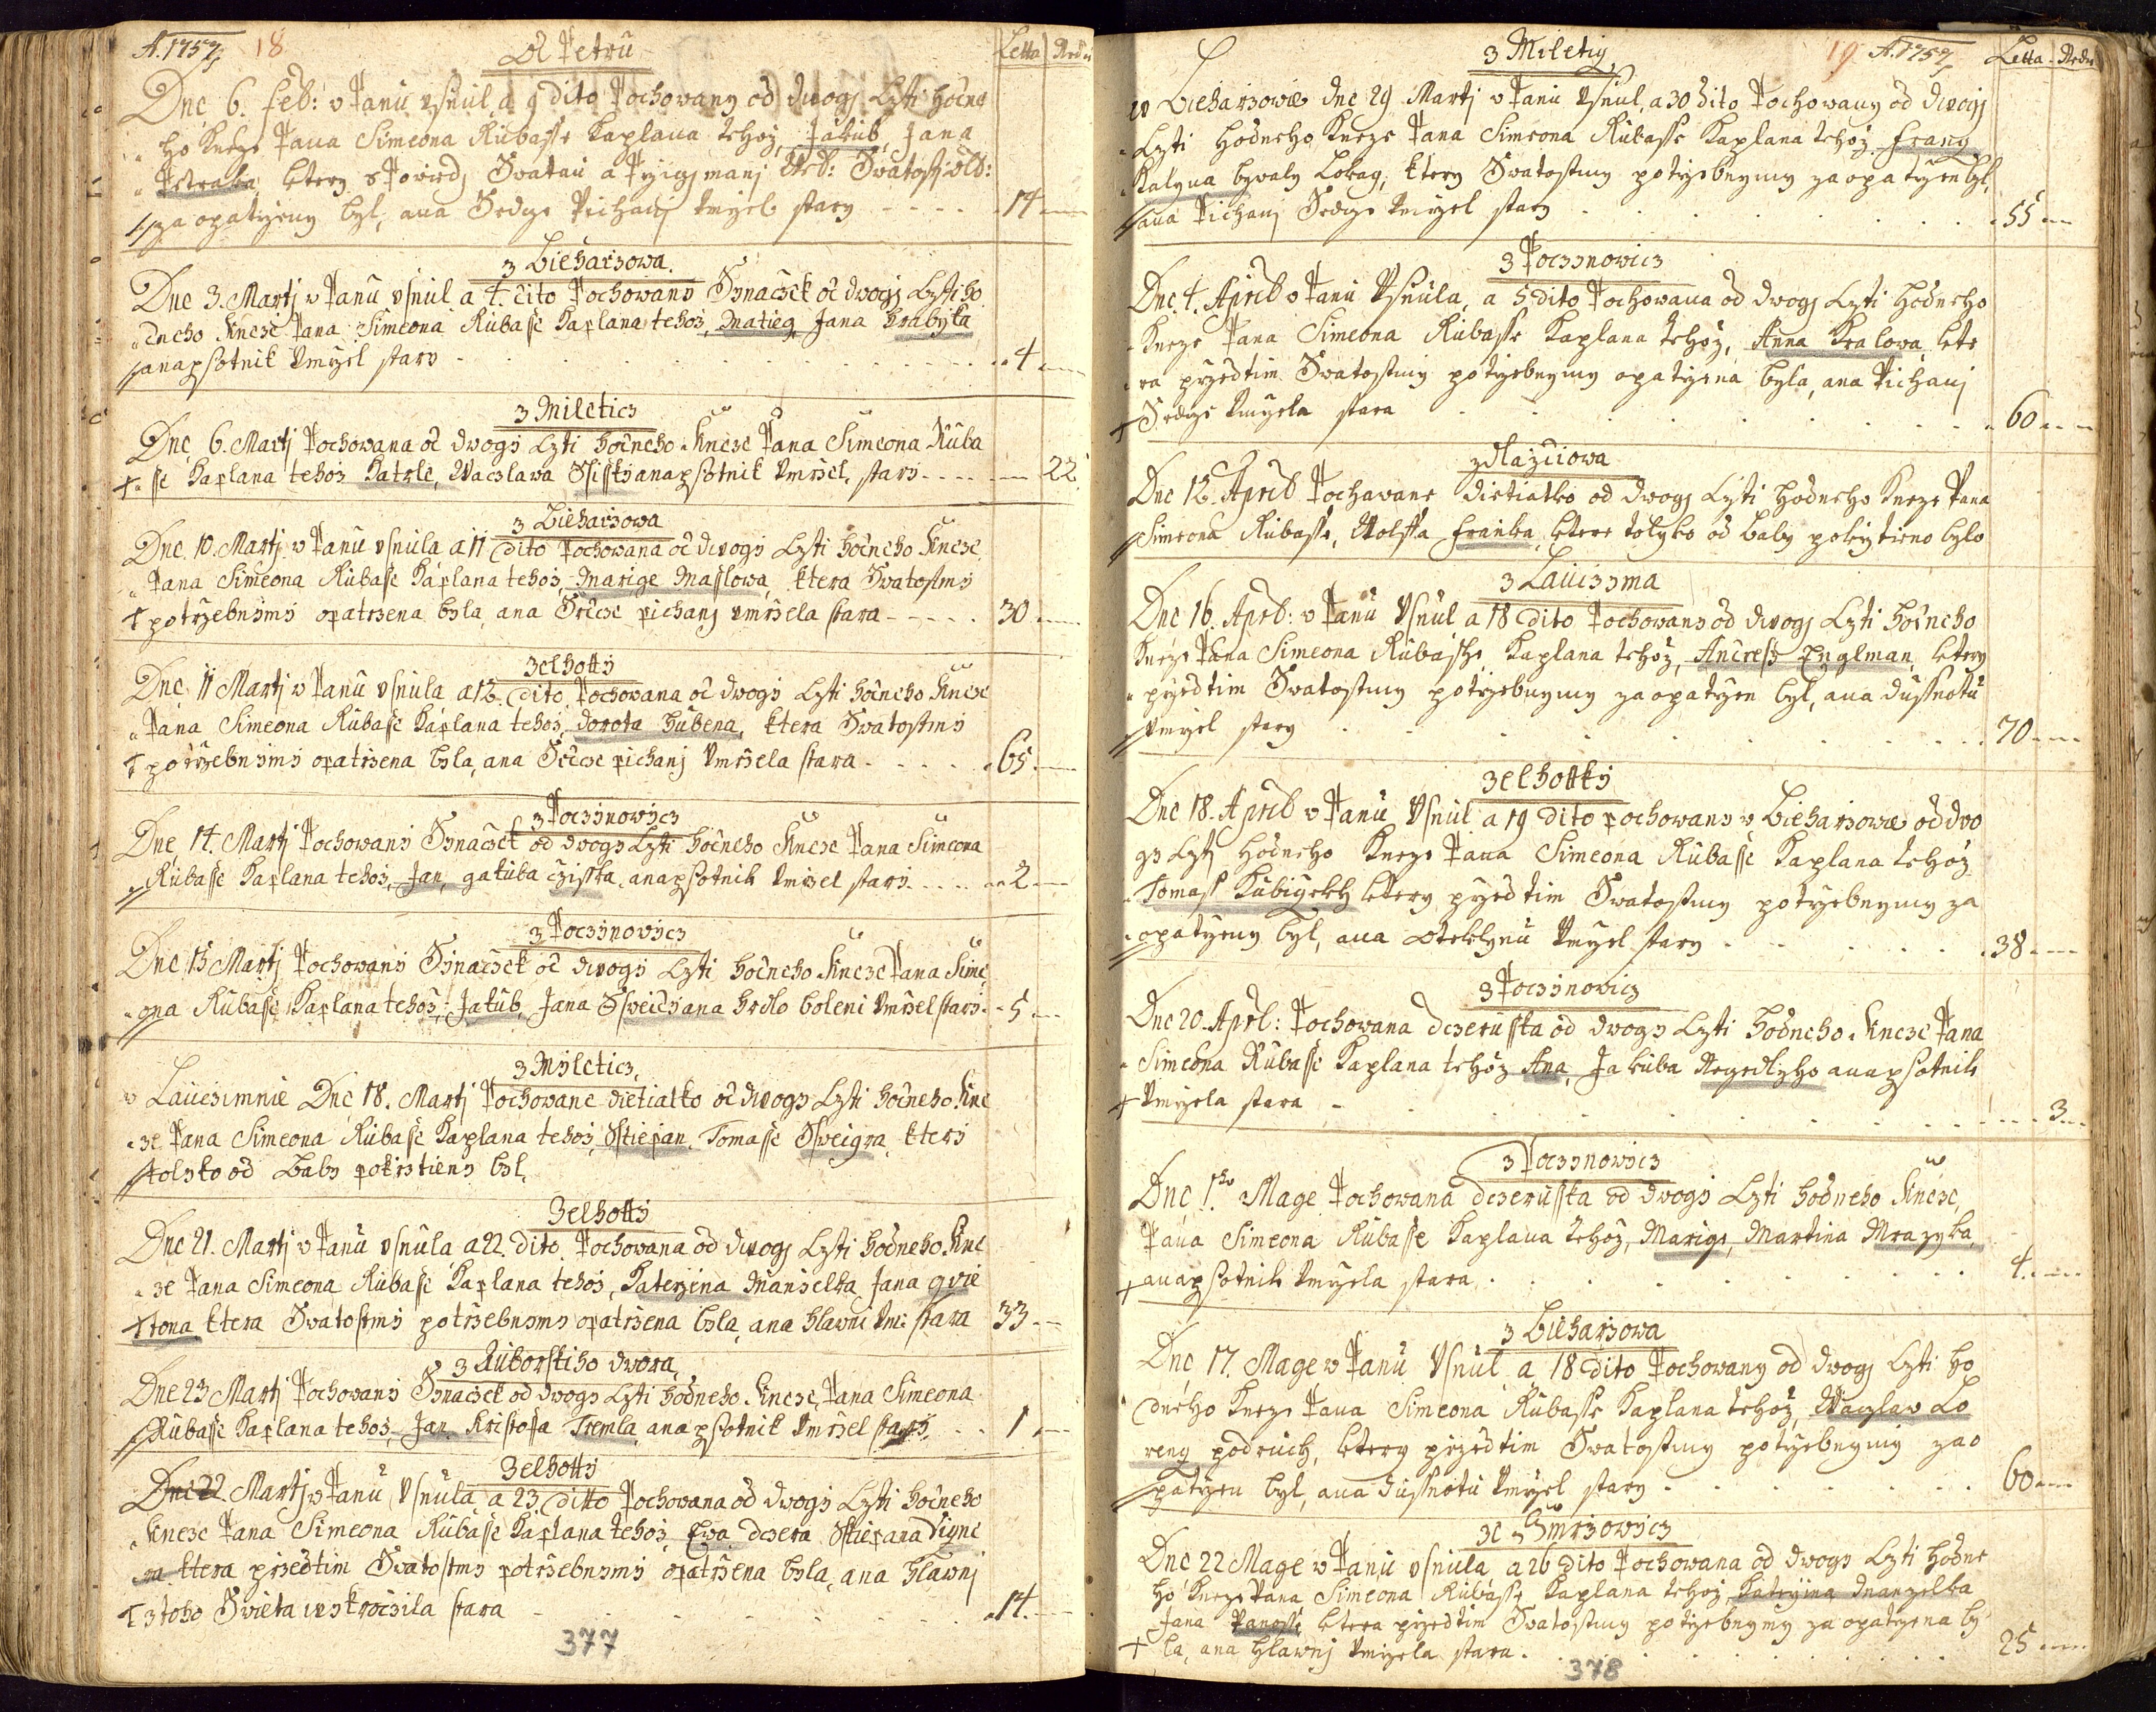 A. 1757 18 Od Petru Letta Nedie
Dne 6. Feb: v Panu vsnul a 9 dito Pochowany od dwogj Czti hodne
ho Kneze Pana Simeona Rubasse Kaplana tehoz, Jakub, Jana
Petraka, ktery s Powiedj Swatau a Przigjmanj Weleb: Swatosti Old:
za opatrzeny byl, ana Srdcze Pichanj Vmrzel stary 14
z Bieharzowa
Dne 3. Martj v Panu vsnul a 4. dito Pochowany Synaczek od dwogj Czti ho
dneho kneze Pana Simeona Rubasse Kaplana tehoz, Matieg Jana Hrabyka
anapsotnik Vmrzel stary 4
z Mileticz
Dne 6. Martj Pochowana od dwogy Czti hodneho Kneze Pana Simeona Ruba
sse Kaplana tehoz Katrle, Waczlawa anapsotnik Vmrzel, stary 22
z Bieharzowa
Dne 10. Martj v Panu vsnula a 11 dito Pochowana od dwogy Czti hodneho Kneze
Pana Simeona Rubasse Kaplana tehoz, Marige Maslowa, ktera Swatostmy
potrzebnymy opatrzena byla, ana Srdcze pichanj vmrzela stara 30
Zelhotty
Dne 11 Martj v Panu vsnula a 12. dito Pochowana od dwogy Czti hodneho Kneze
Pana Simeona Rubasse Kaplana tehoz, Dorota Hubena, ktera Swatostmy
potrzebnymy opatrzena byla, ana Srdcze pichanj Vmrzela stara 65
z Poczinowicz
Dne 14. Martj Pochowany Synaczek od dwogy Czti hodneho Kneze Pana Simeona
Rubasse Kaplana tehoz, Jan, gakuba czisska, anapsotnik Vmrzel stary 2
z Poczinowicz
Dne 15 Martj Pochowany Synaczek od dwogy Czti hodneho Kneze Pana Sime
ona Rubasse Kaplana tehoz, Jakub, Jana ana hrdlo boleni Vmrzel stary 5
z Myleticz
v Lauczimnie Dne 18. Martj Pochowane dietiatko od dwogy Czti hodneho Kne
ze Pana Simeona Rubasse Kaplana tehoz, Sstiepan, Tomasse Ssweigra, ktery
tolyko od Baby pokrztieny byl,
Zelhotty
Dne 21. Martj v Panu vsnula a 22. dito. Pochowana od dwogj Czti hodneho Kne
ze Pana Simeona Rubasse Kaplana tehoz, Katerzina Manzelka, Jana gvie
tona ktera Swatostmy potrzebnymy opatrzena byla, ana hlawni Vm: stara 33
z Ruborskiho dwora
Dne 23 Martj Pochowany Synaczek od dwogy Czti hodneho Kneze, Pana Simeona
Rubasse Kaplana tehoz, Jan, Kristoffa Tremla, anapsotnik Vmrzel stary 1
Zelhotty
Dne 22 Martj v Panu, Vsnula a 23 ditto Pochowana od dwogy Czti hodneho
Kneze Pana Simeona Rubasse Kaplana tehoz, Ewa dczera Sstiepana Vigne
ra ktera przedtim Swatostmy potrzebnymy opatrzena byla, ana hlawnj
z toho Swieta wykroczila stara 14
377
z Miletig 19 A. 1757 Letta Nedie
w Bieharzowie dne 29. Martj v Panu Vsnul, a 30 dito Pochowany od dwogy
Czti hodneho Kneze Pana Simeona Rubasse Kaplana tehoz Franz
Kalyna bywaly Lokag, ktery Swatostmy potrzebnymy zaopatrzen byl,
ana Pichanj Srdcze Vmrzel stary 55
z Poczynowicz
Dne 4. April v Panu Vsnula, a 5 dito Pochowana od dwogj Czti hodneho
Kneze Pana Simeona Rubasse Kaplana tehoz, Anna Kralowa kte
ra przedtim Swatostmy potrzebnymy opatrzena byla, ana Pichanj
Srdcze Vmrzela stara 60
Dne 12. April Pochawane dietiatko od dwogj Czti hodneho Kneze Pana
Simeona Rubasse, Wolffa Franka, ktere tolyko od baby pokrztieno bylo
z Lauczyma
Dne 16. April: v Panu Vsnul a 18 dito Pochowany od dwogj Czti hodneho
Kneze Pana Simeona Rubasse Kaplana tehoz, Andress Englman, ktery
przedtim Swatostmy potrzebnymy zaopatrzen byl, ana dussnotu
Vmrzel stary 70
Zelhottky
Dne 18. April v Panu Vsnul a 19 dito pochowany v Bieharzowie od dwo
gy Czti hodneho Kneze Pana Simeona Rubasse Kaplana tehoz
Tomass ktery przedtim Swatostmy potrzebnymy za
opatrzeny byl, ana oteklynu Vmrzel stary 38
z Poczynowicz
Dne 20. Aprl: Pochowana dczerusska od dwogy Czti hodneho Kneze Pana
Simeona Rubasse Kaplana tehoz Ana, Jakuba anapsotnik
Vmrzela stara 3
z Poczynowicz
Dne 1ho Mage Pochowana dczerusska od dwogy Czti hodneho Kneze,
Pana Simeona Rubasse Kaplana tehoz, Marige, Martina Mrazyka,
anapsotnik Vmrzela stara 4
z Bieharzowa
Dne 17. Mage v Panu Vsnul a 18 dito Pochowany od dwogj Czti ho
dneho Kneze Pana Simeona Rubasse Kaplana tehoz, Waczlaw Lo
renz podruch, ktery przedtim Swatostmy potrzebnymy zao
patrzen byl, ana dussnotu Vmrzel stary 60
ze Smrzowicz
Dne 22 Mage v Panu vsnula, a 26 dito Pochowana od dwogy Czti hodne
ho Kneze Pana Simeona Rubasse Kaplana tehoz, Katerzina Manzelka
Jana Panosse ktera przedtim Swatostmy potrzebnymy zaopatrzena by
la, ana hlawnj Vmrzela stara 25
378